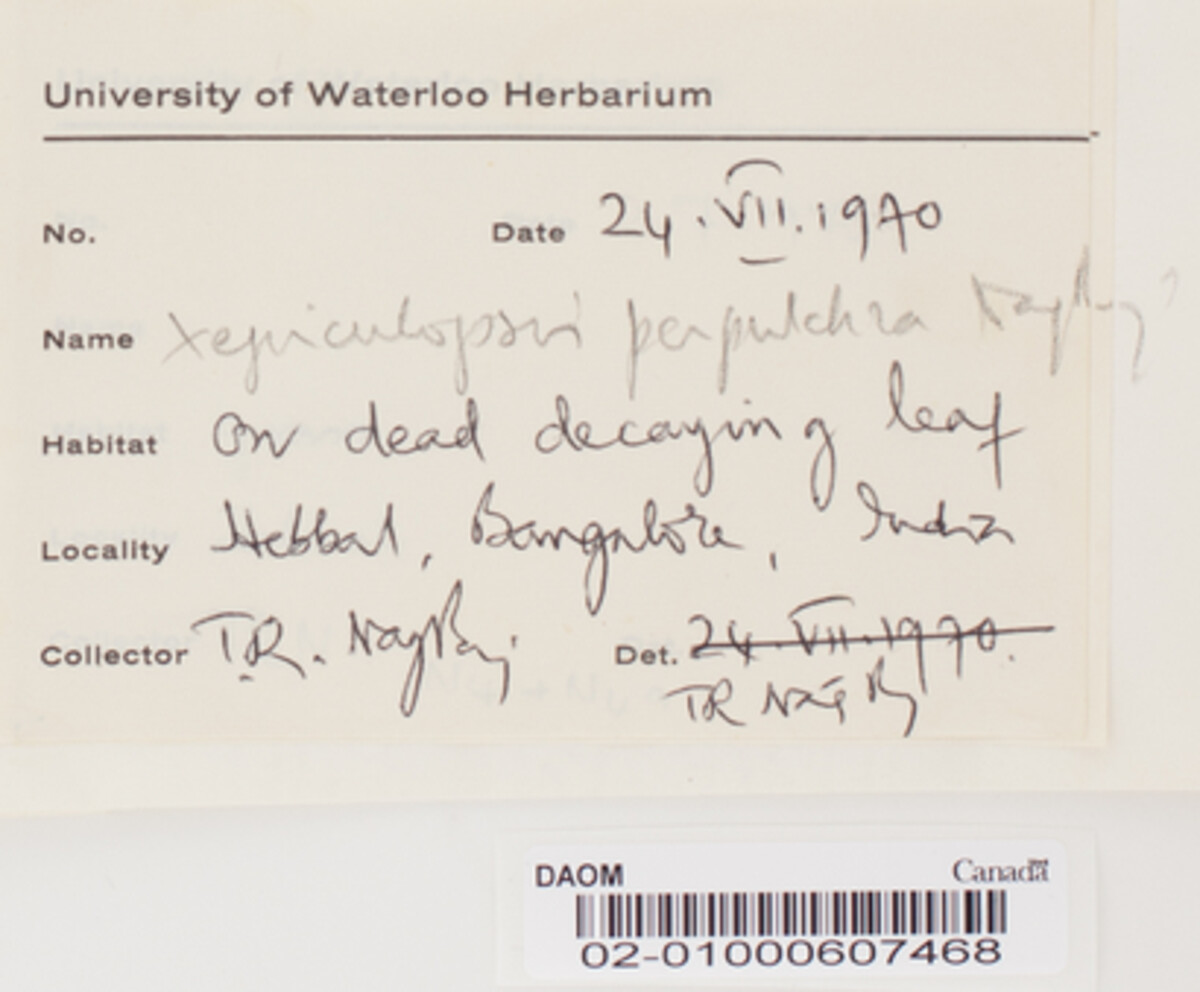 University of Waterloo Herbarium
No. Date 24.VII.1970
Name Xepiculopsis perpulchra Nag Raj
Habitat On dead decaying leaf
Locality Hebbal, Bangalore, India
Collector T.R. Nag Raj Det. 24.VII.1970.
TR Nag Raj
DAOM Canada
02-01000607468